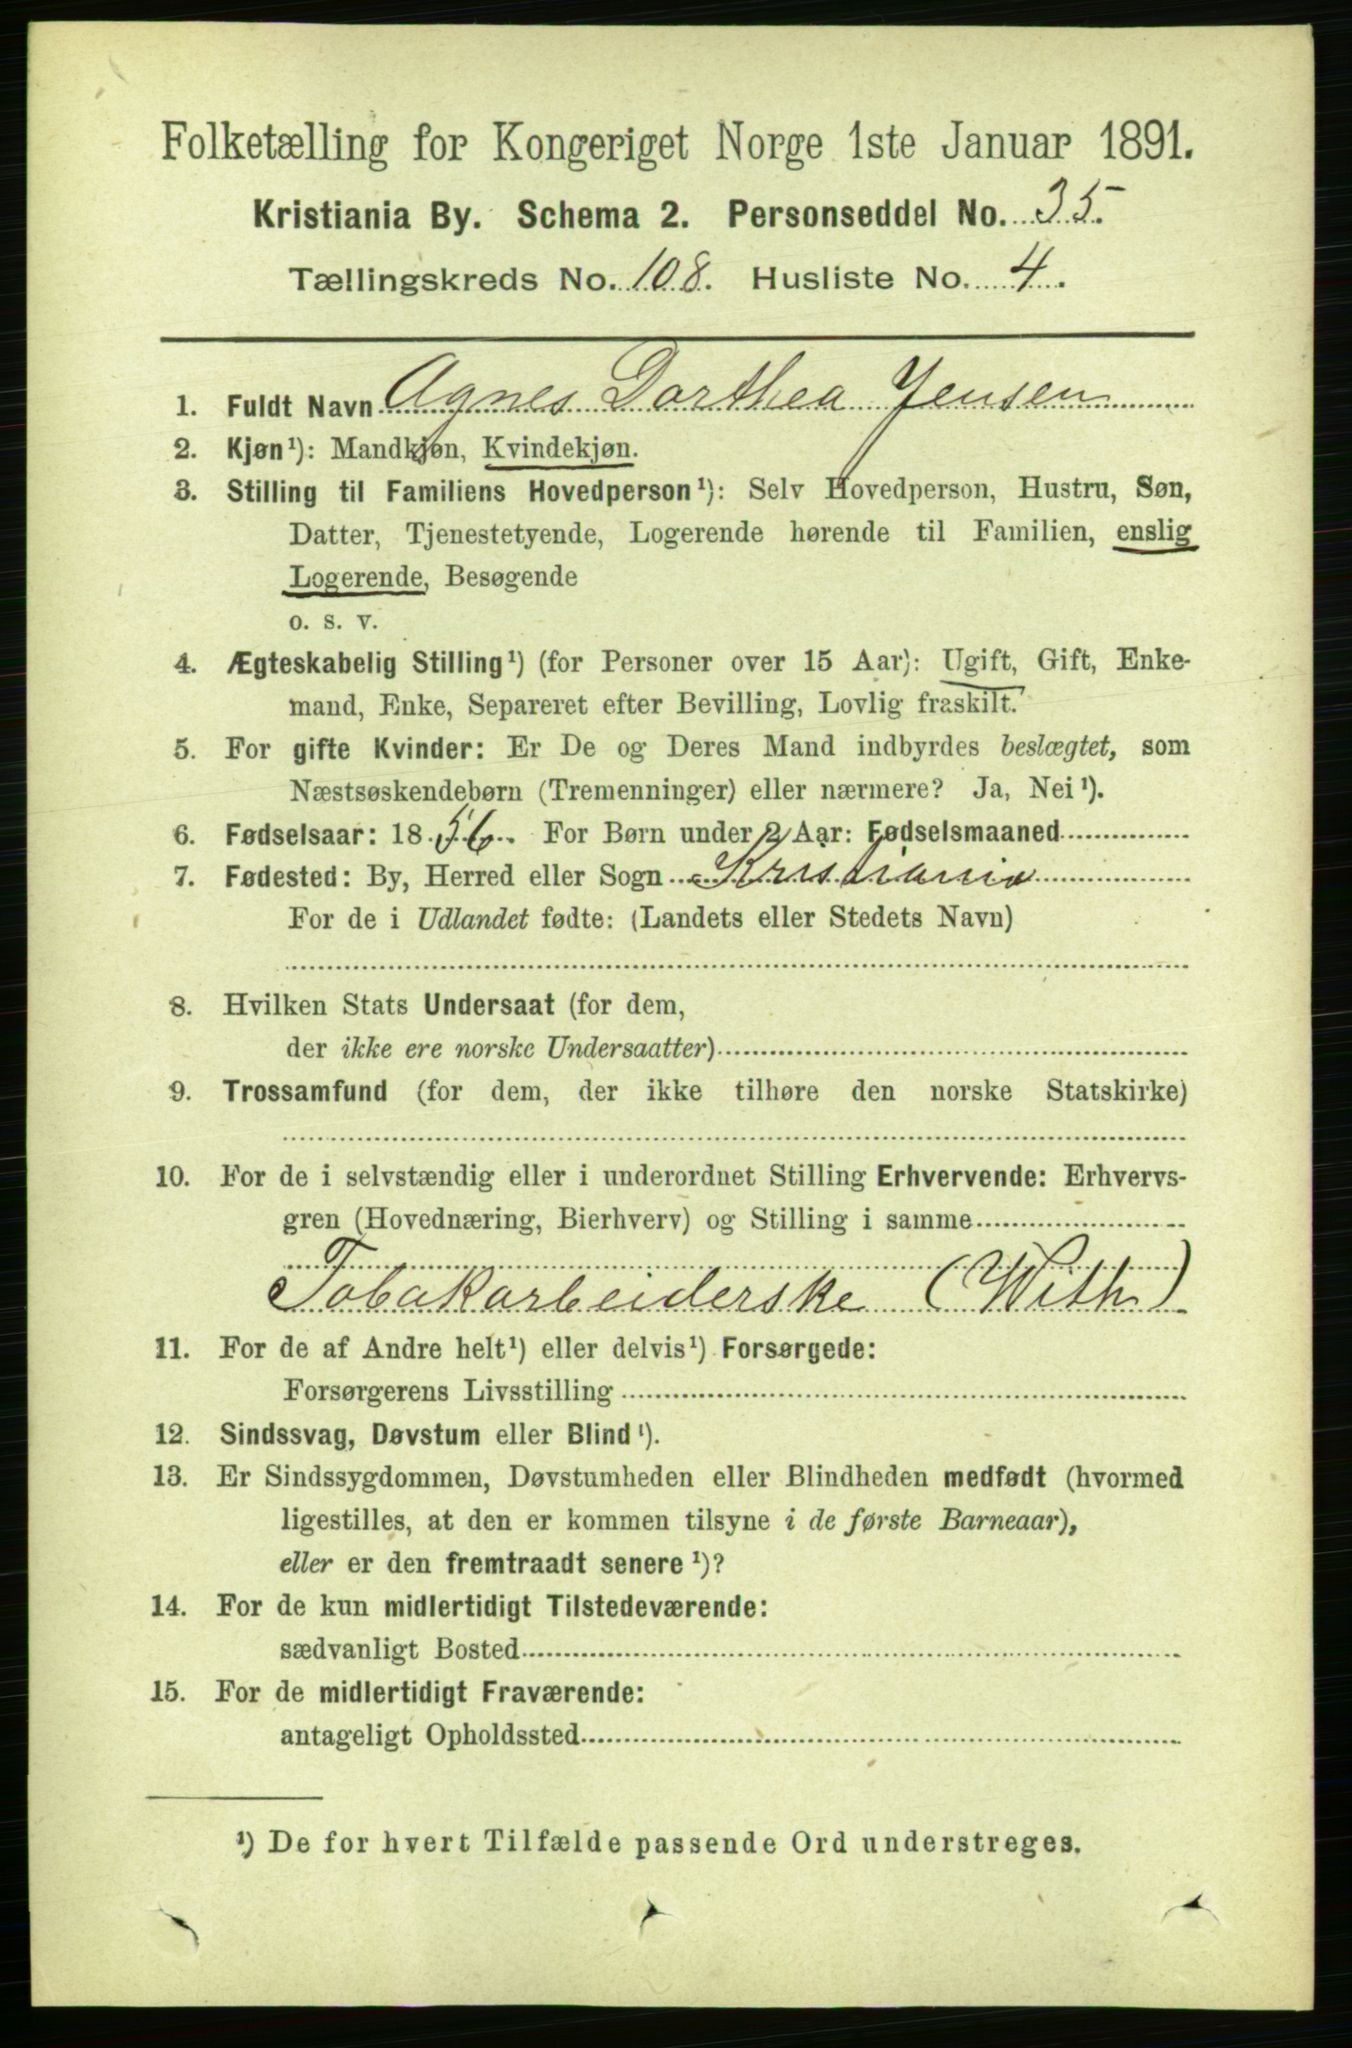 Folketælling for Kongeriget Norge 1ste Januar 1891.
Kristiania By. Schema 2. Personseddel No. 35.
Tællingskreds No. 108. Husliste No. 4.
1. Fuldt Navn Agnes Dorthea Jensen
2. Kjøn¹): Mandkjøn, Kvindekjøn.
3. Stilling til Familiens Hovedperson¹): Selv Hovedperson, Hustru, Søn,
Datter, Tjenestetyende, Logerende hørende til Familien, enslig
Logerende, Besøgende
o. s. v.
4. Ægteskabelig Stilling¹) (for Personer over 15 Aar): Ugift, Gift, Enke-
mand, Enke, Separeret efter Bevilling, Lovlig fraskilt.
5. For gifte Kvinder: Er De og Deres Mand indbyrdes beslægtet, som
Næstsøskendebørn (Tremenninger) eller nærmere? Ja, Nei¹).
6. Fødselsaar: 1856. For Børn under 2 Aar: Fødselsmaaned
7. Fødested: By, Herred eller Sogn Kristiania
For de i Udlandet fødte: (Landets eller Stedets Navn)
8. Hvilken Stats Undersaat (for dem,
der ikke ere norske Undersaatter)
9. Trossamfund (for dem, der ikke tilhøre den norske Statskirke)
10. For de i selvstændig eller i underordnet Stilling Erhvervende: Erhvervs-
gren (Hovednæring, Bierhverv) og Stilling i samme
Tobakarbeiderske (With)
11. For de af Andre helt¹) eller delvis¹) Forsørgede:
Forsørgerens Livsstilling
12. Sindssvag, Døvstum eller Blind¹).
13. Er Sindssygdommen, Døvstumheden eller Blindheden medfødt (hvormed
ligestilles, at den er kommen tilsyne i de første Barneaar),
eller er den fremtraadt senere¹)?
14. For de kun midlertidigt Tilstedeværende:
sædvanligt Bosted
15. For de midlertidigt Fraværende:
antageligt Opholdssted
¹) De for hvert Tilfælde passende Ord understreges.